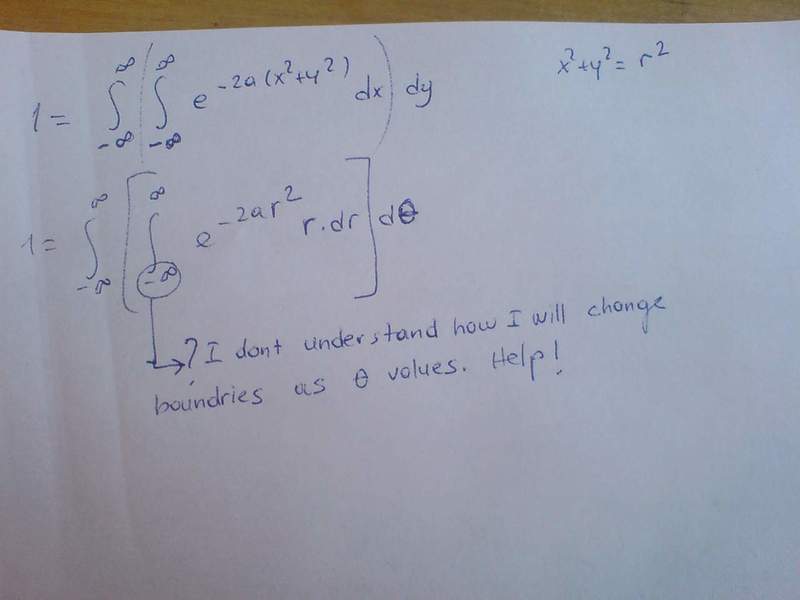 1 = ∫_{-∞}^{∞} ( ∫_{-∞}^{∞} e^{-2a(x²+y²)} dx ) dy
x²+y² = r²
1 = ∫_{-∞}^{∞} [ ∫_{-∞}^{∞} e^{-2ar²} r.dr ] dθ
? I dont understand how I will change
boundries as θ values. Help!